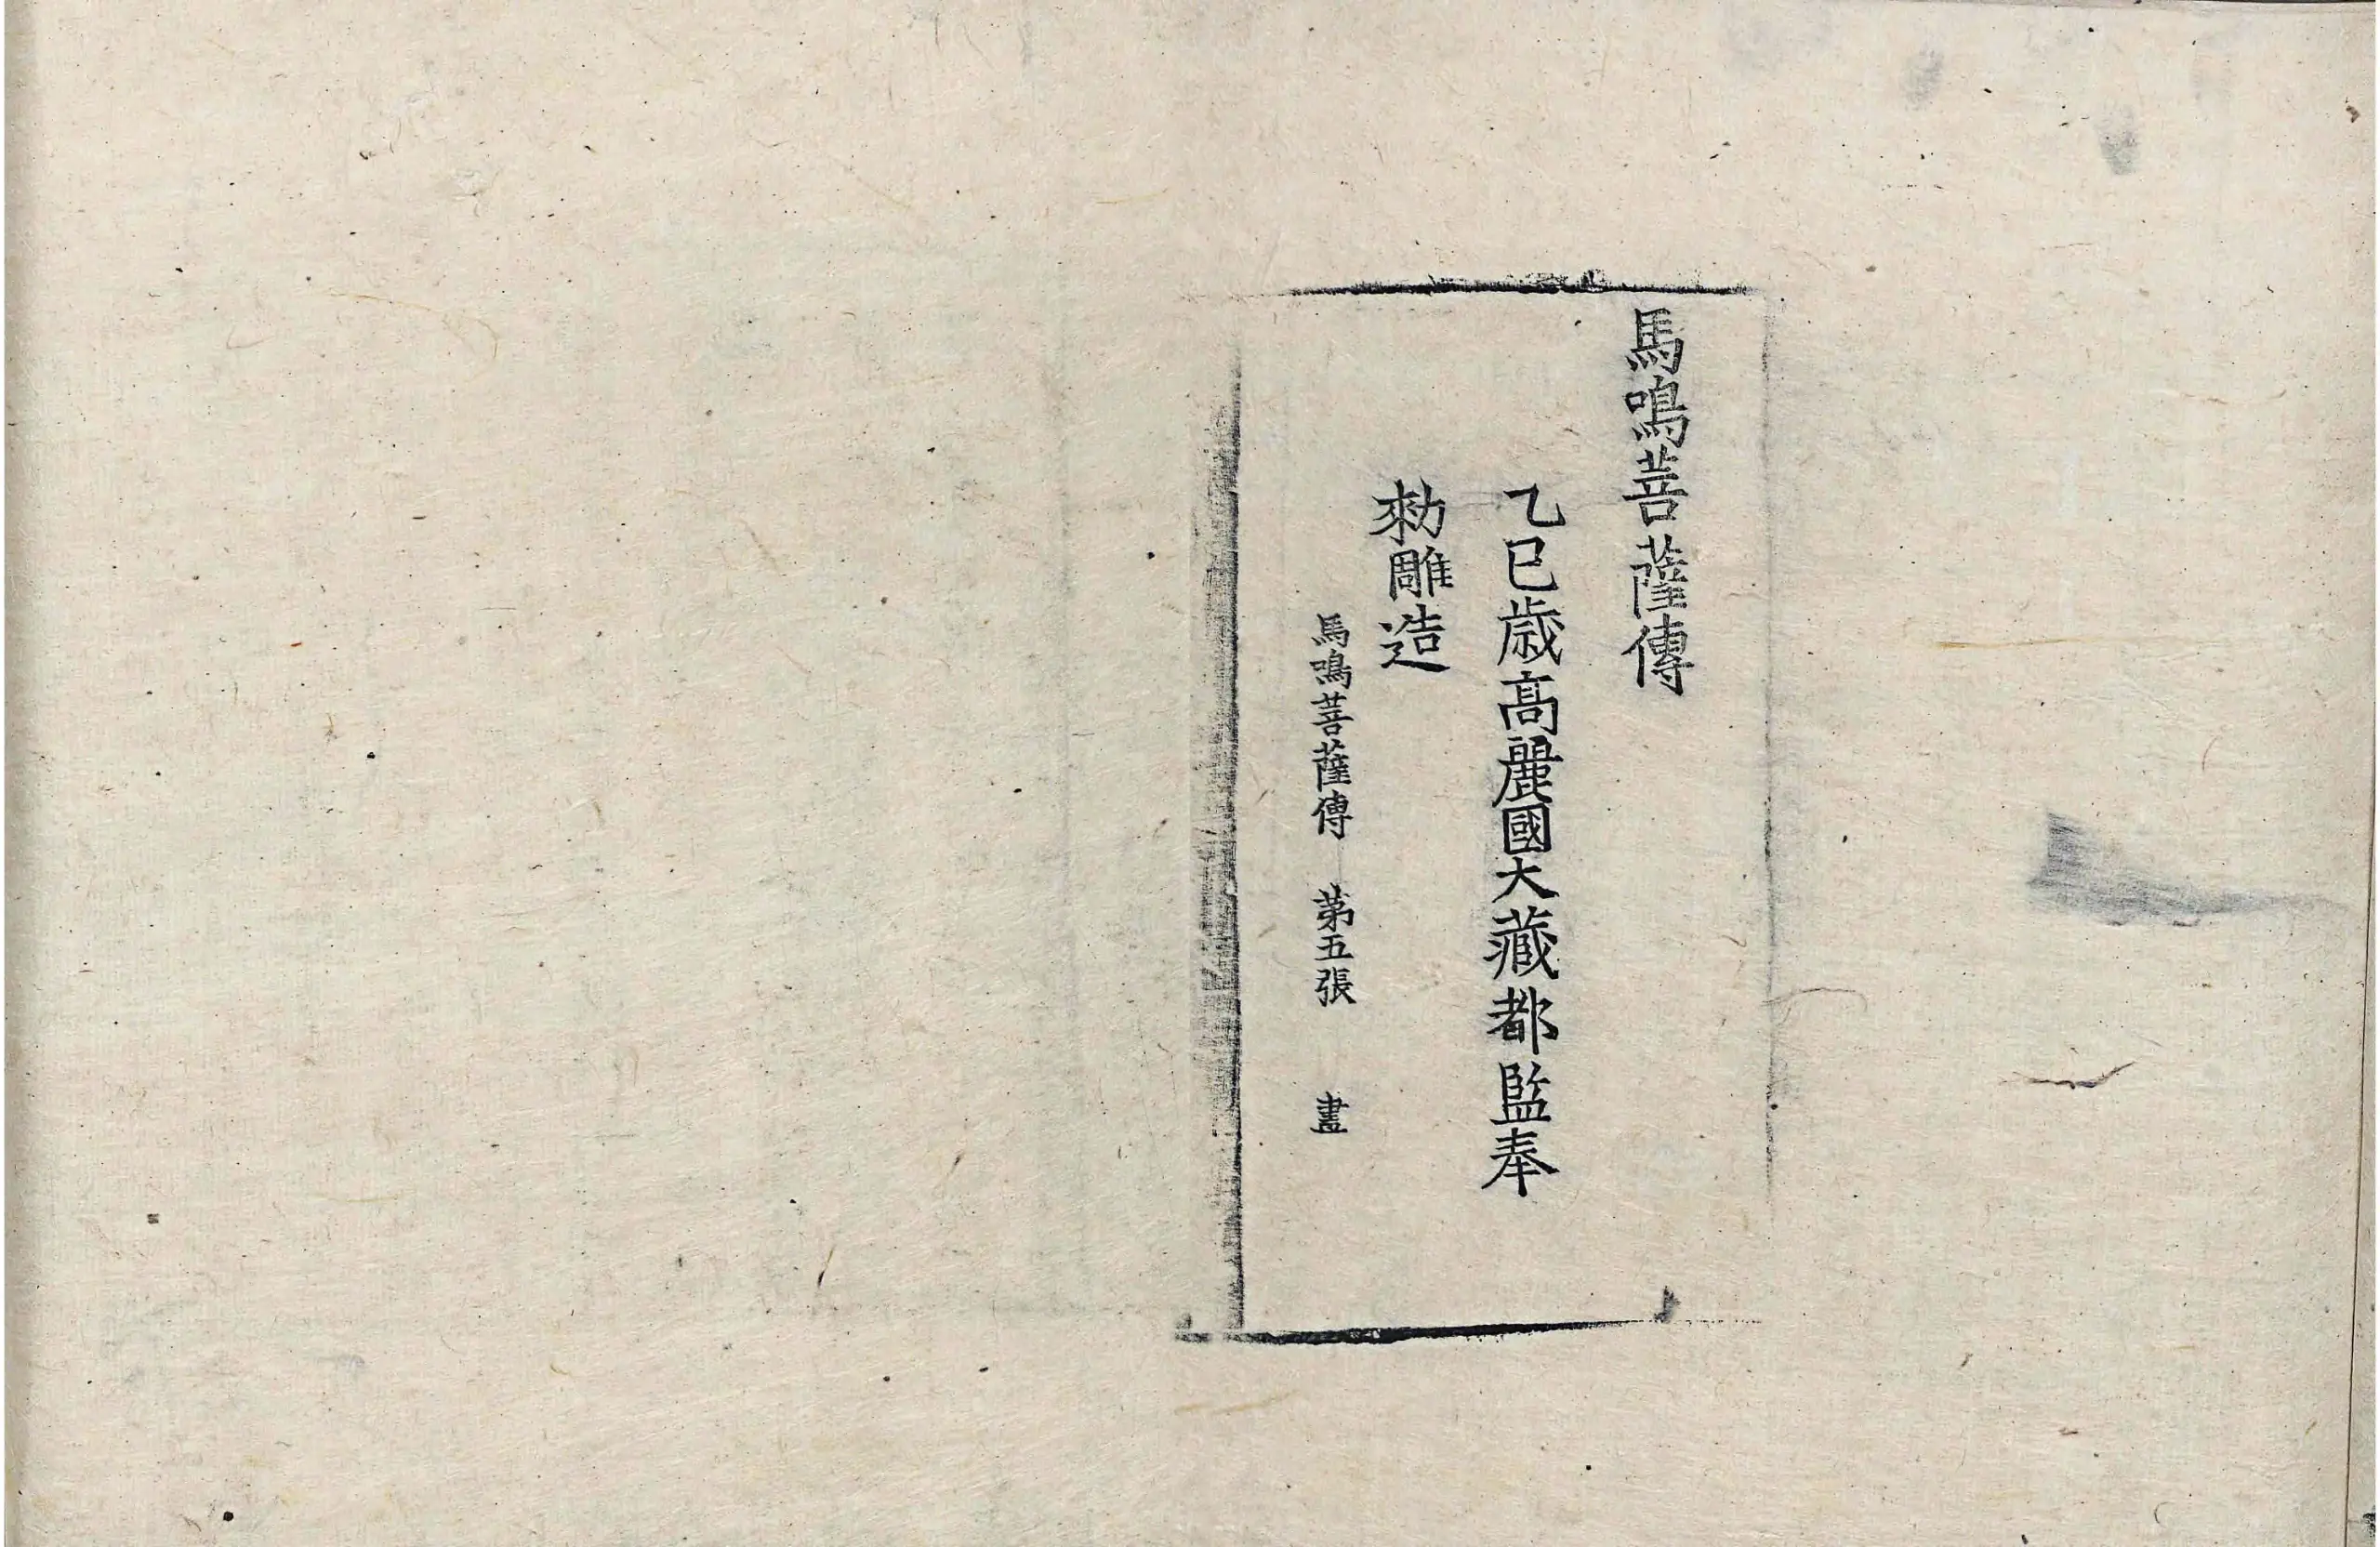 馬鳴菩薩傳
乙巳歳高麗國大藏都監奉
勑雕造
馬鳴菩薩傳 第五張 畫